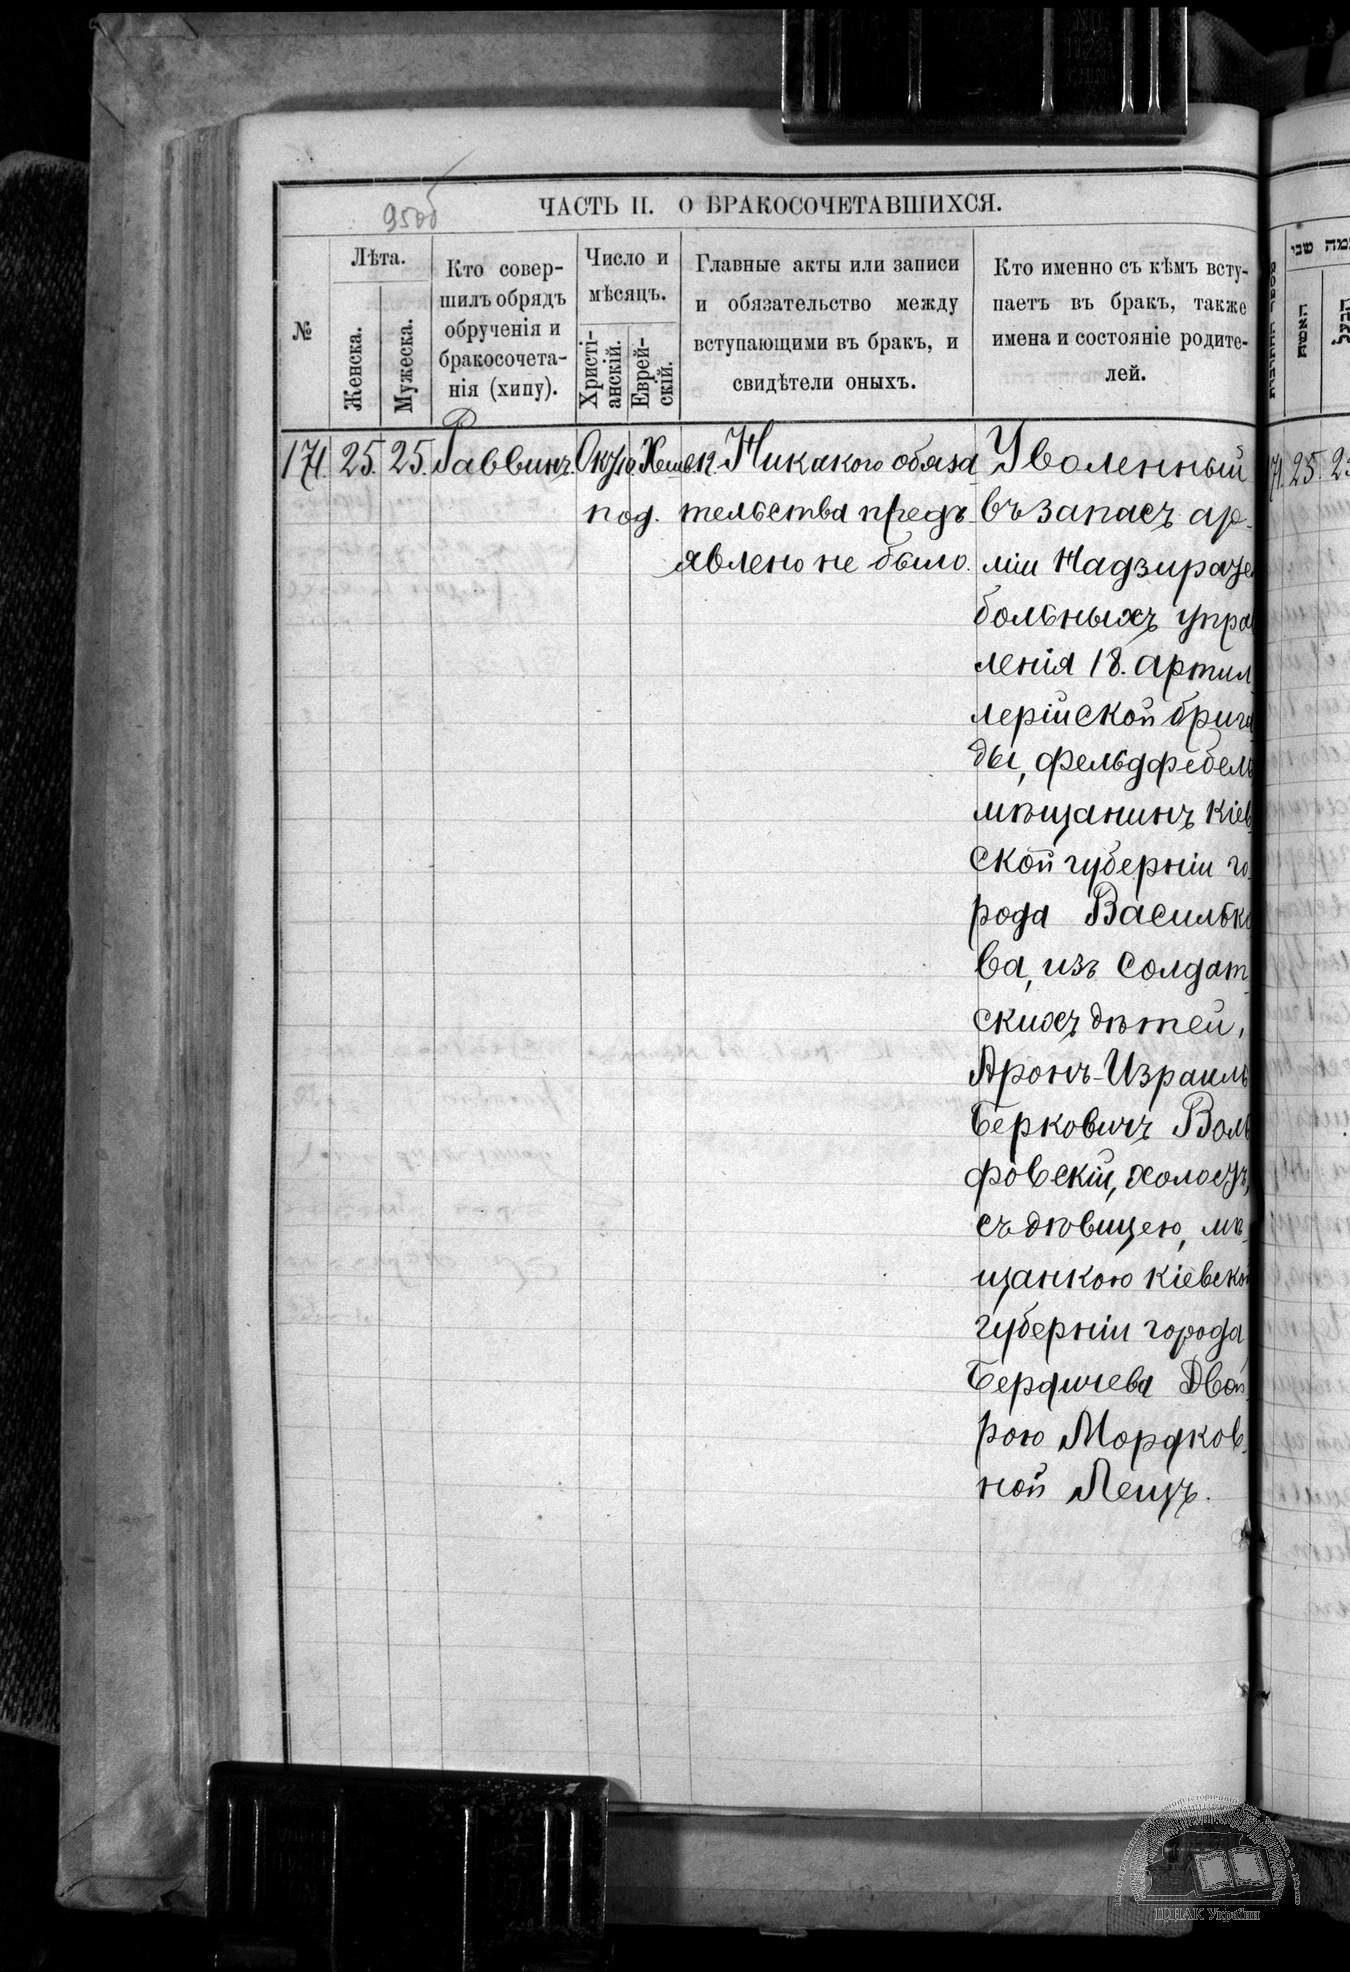 95об
ЧАСТЬ II. О БРАКОСОЧЕТАВШИХСЯ.
№
Лѣта.
Женска.
Мужеска.
Кто совер-
шилъ обрядъ
обрученія и
бракосочета-
нія (хипу).
Число и
мѣсяцъ.
Христі-
анскій.
Еврей-
скій.
Главные акты или записи
и обязательство между
вступающими въ бракъ, и
свидѣтели оныхъ.
Кто именно съ кѣмъ всту-
паетъ въ бракъ, также
имена и состояніе родите-
лей.
171. 25. 25. Раввинъ. Никакого обяза
тельства предъ
явлено не было.
Уволенный
въ запасъ ар-
міи Надзирате
больныхъ упра
ленія 18. артил
лерійской брига
ды, фельдфебель
мѣщанинъ Кіев
ской губерніи го-
рода Василько
ва, изъ солдат
скихъ дѣтей,
Аронъ-Израиль
Берковичъ Воль
фовскій, холостъ,
съ дѣвицею, мѣ-
щанкою Кіевской
губерніи города
Бердичева Двой
рою Мордков-
ной Лещъ.
האשה
171. 25.
ЦДІАК України